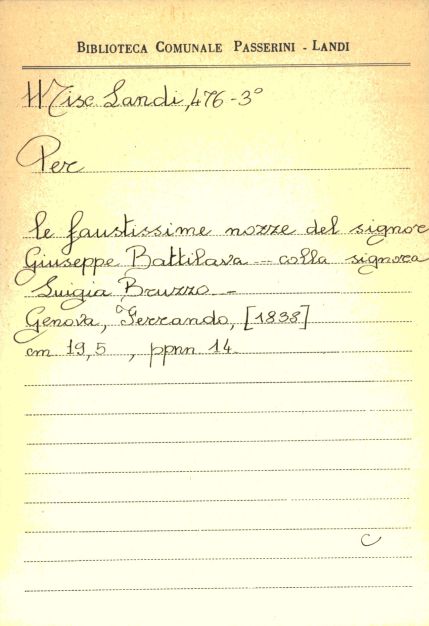 BIBLIOTECA COMUNALE PASSERINI - LANDI
Misc Landi, 476-3°
Per
le faustissime nozze del signor
Giuseppe Battilava -- colla signora
Luigia Bruzzo -
Genova, Ferrando, [1838]
cm 19,5 , ppnn 14
C